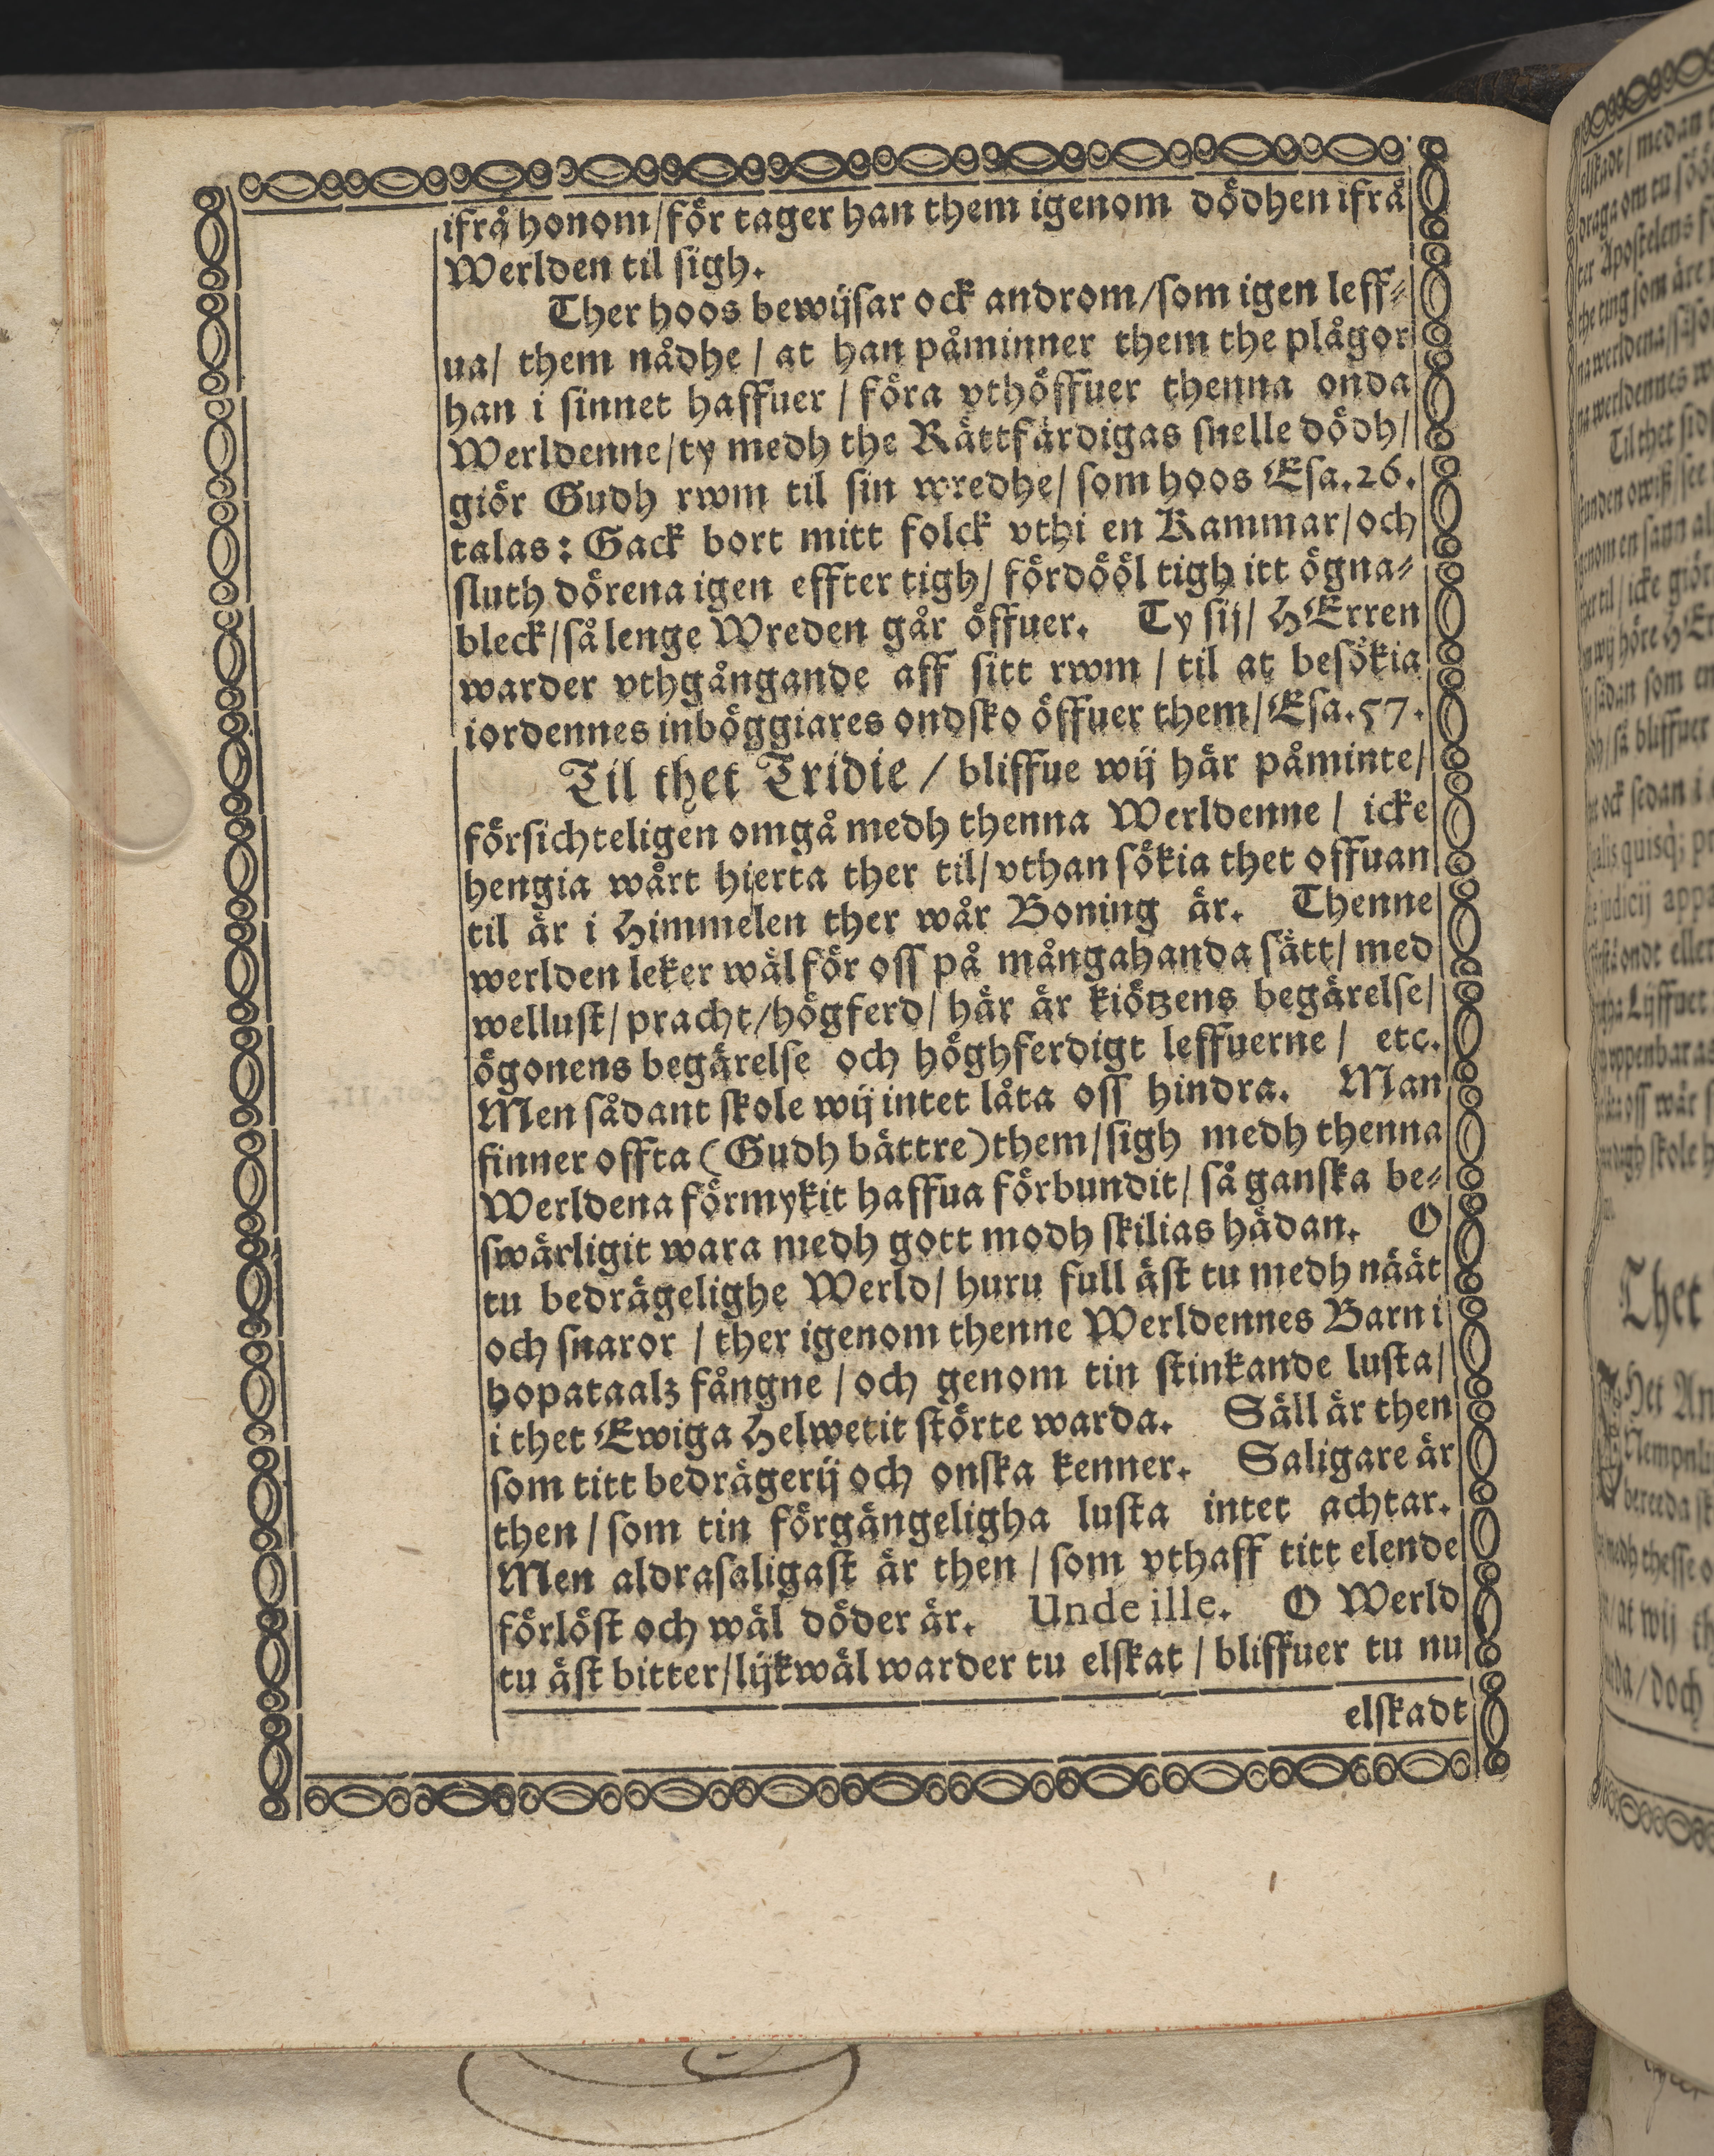 ifrå honom/för tager han them igenom dödhen ifrå
Werlden til sigh.
Ther hoos bewijsar ock androm/som igen leff-
ua/ them nådhe / at han påminner them the plågor
han i sinnet haffuer / föra vthöffuer thenna onda
Werldenne/ty medh the Rättfärdigas snelle dödh/
giör Gudh rwm til sin wredhe/ som hoos Esa.26.
talas: Gack bort mitt folck vthi en Kammar/och
sluth dörena igen effter tigh/ fördööl tigh itt ögna-
bleck/så lenge Wreden går öffuer. Ty sij/ HErren
warder vthgångande aff sitt rwm / til at besökia
iordennes inböggiares ondsko öffuer them/Esa.57.
Til thet Tridie / bliffue wij här påminte/
försichteligen omgå medh thenna Werldenne / icke
hengia wårt hierta ther til/vthan sökia thet offuan
til är i Himmelen ther wår Boning är. Thenne
werlden leker wäl för oss på mångahanda sätt/ med
wellust/pracht/högferd/ här är kiötzens begärelse/
ögonens begärelse och höghferdigt leffuerne / etc.
Men sådant skole wij intet låta oss hindra. Man
finner offta (Gudh bättre)them/sigh medh thenna
Werldena förmykit haffua förbundit/ så ganska be-
swärligit wara medh gott modh skilias hädan. O
tu bedrägelighe Werld/ huru full äst tu medh näät
och snaror / ther igenom thenne Werldennes Barn i
hopataalz fångne / och genom tin stinkande lusta/
i thet Ewiga Helwetit störte warda. Säll är then
som titt bedrägerij och onska kenner. Saligare är
then / som tin förgängeligha lusta intet achtar.
Men aldrasaligast är then / som vthaff titt elende
förlöst och wäl döder är. Unde ille. O Werld
tu äst bitter/lijkwäl warder tu elskat / bliffuer tu nu
elskadt